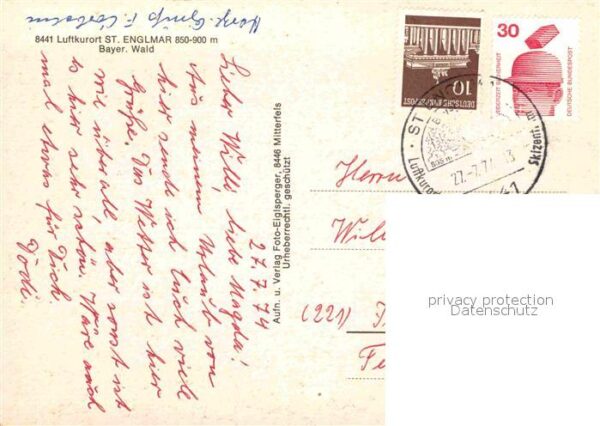 Herzl. Grüße
8441 Luftkurort ST. ENGLMAR 850-900 m
Bayer. Wald
27.7.74
Lieber Willi, liebe Magda!
Aus meinem Urlaub von
hier sende ich Euch viele
Grüße. Das Wetter ist hier
wie überall, aber sonst ist
es hier sehr schön. Wäre auch
mal etwas für Dich.
Aufn. u. Verlag Foto-Eiglsperger, 8446 Mitterfels
Urheberrechtl. geschützt
10
DEUTSCHE BUNDESPOST
30
JEDERZEIT SICHERHEIT
DEUTSCHE BUNDESPOST
ST.
Luftkurort
Skizent.
27.-7.7
Herrn
Wil
(221)
privacy protection
Datenschutz